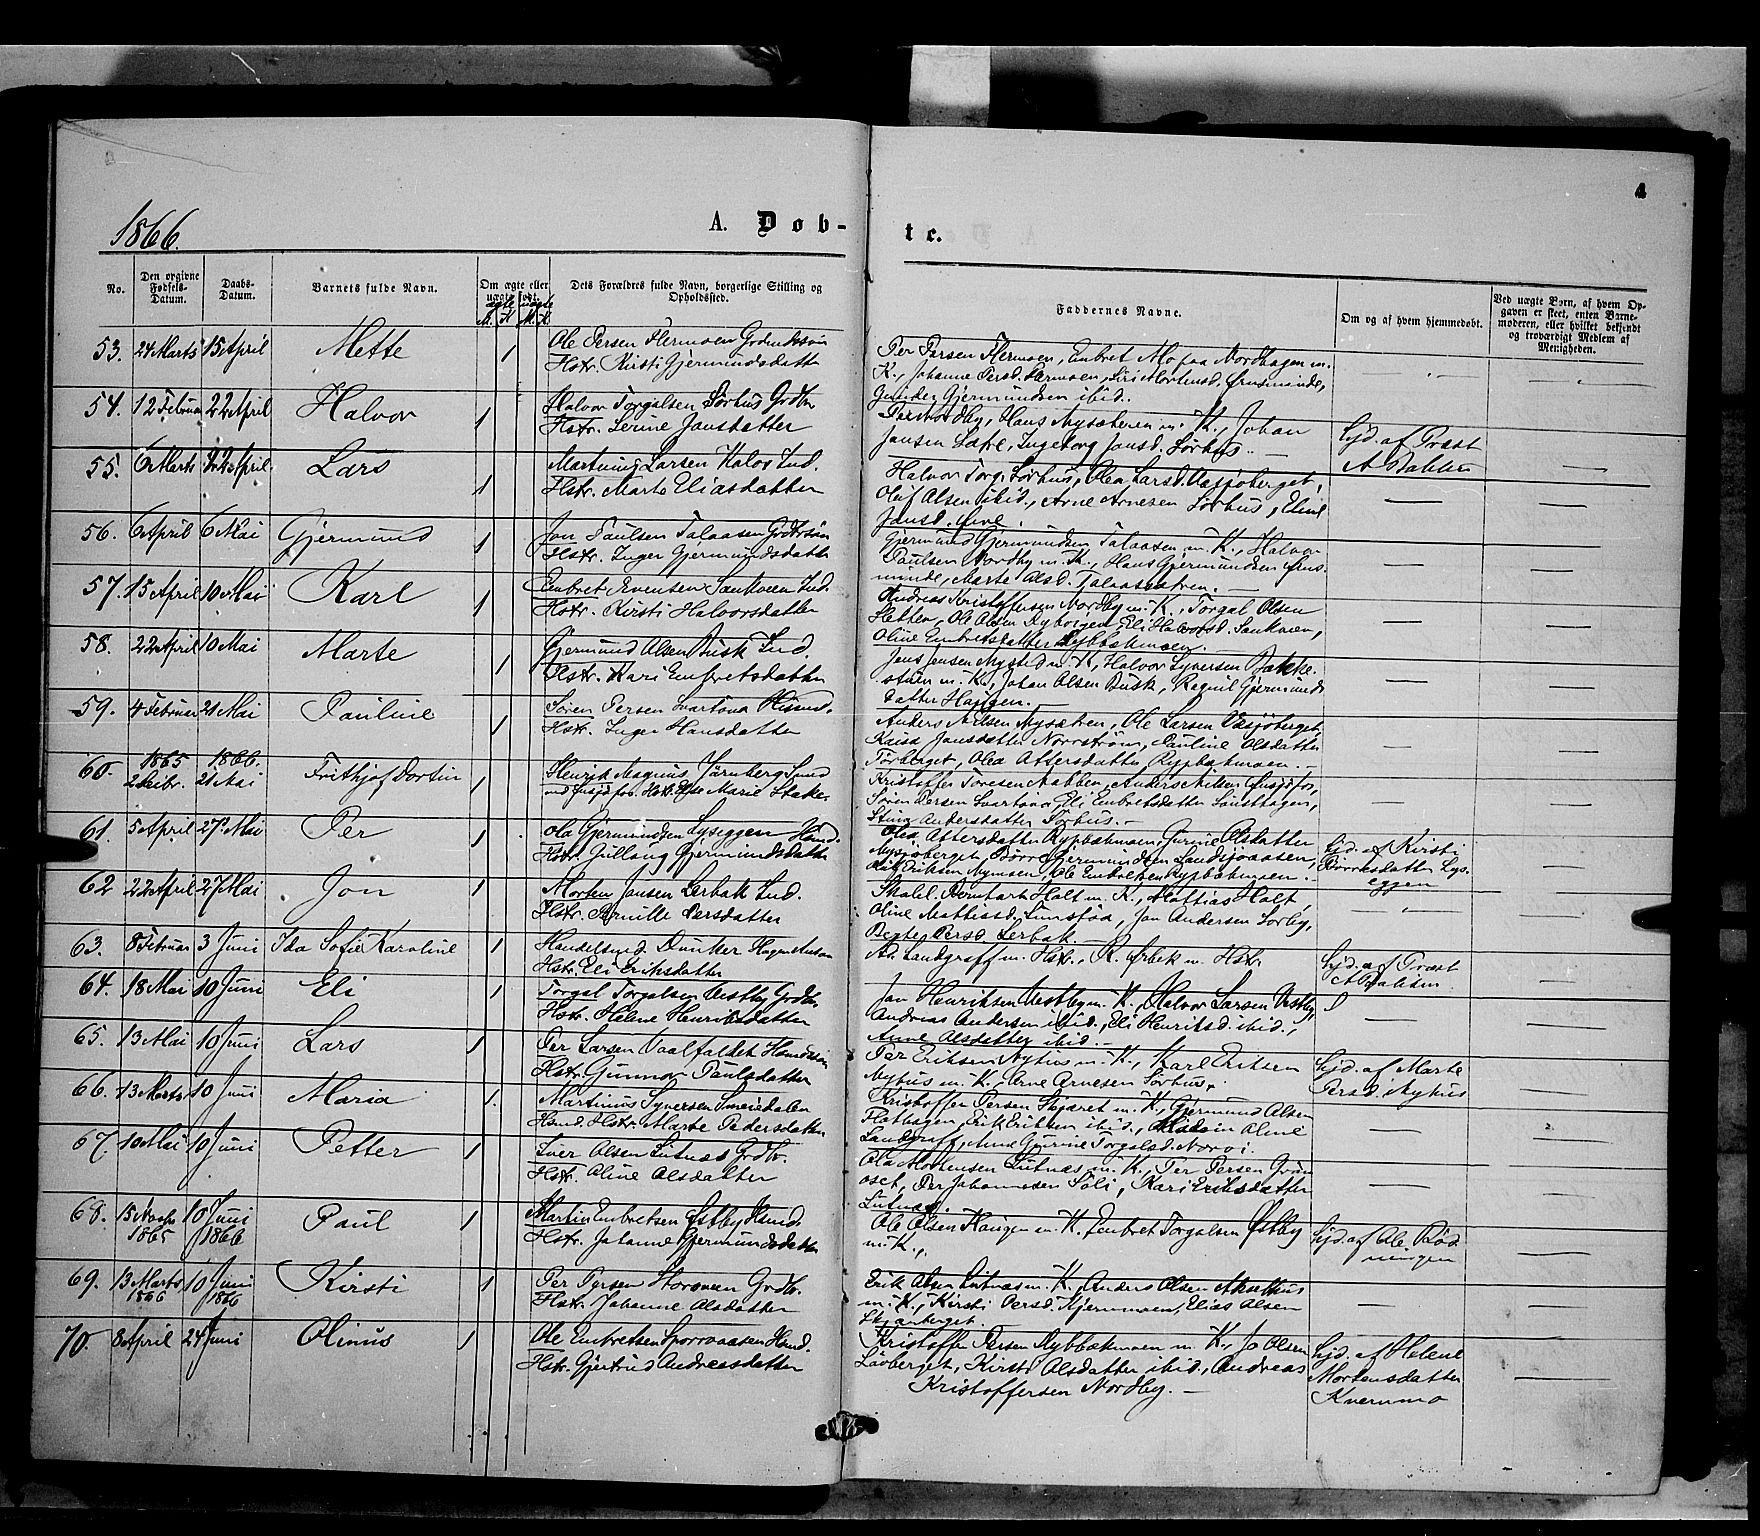 1866.
A. Døb-
te.
4
No.
Den opgivne Fødsels-Datum.
Daabs-Datum.
Barnets fulde Navn.
Om ægte eller uægte født.
ægte uægte
M. K. M. K.
Dets Forældres fulde Navn, borgerlige Stilling og Opholdssted.
Faddernes Navne.
Om og af hvem hjemmedøbt.
Ved uægte Børn, af hvem Opgaven er skeet, enten Barnemoderen, eller hvilket bekjendt og troværdigt Medlem af Menigheden.
53. 24 Marts 15 April Mette 1
Ole Persen Flermoen
Hstr. Kirsti Gjermundsdatter
Per Persen Flermoen, Embret Mo paa Nordhagen m.
K., Johanne Persd. Flermoen, Siri Mortensd. Ørnsminde,
Gunder Gjermundsen ibid.
54. 12 Februar 22 April Halvor 1
Halvor Torgalsen Sørhus Grdbr
Hstr. Serine Jansdatter
Per Nordby, Hans Nysæteren m. K., Johan
Jansen, Ingeborg Jansd. Sørhus.
Hjd. af Præst
A. Bakken
55. 6 Marts 22 April Lars 1
Martinus Larsen Ind.
Hstr. Marte Eliasdatter
Halvor Torg. Sørhus, Olea Larsd. Vasjøberget,
Oluf Olsen ibid., Arne Arnesen Sørhus, Eline
Jansd.
56. 6 April 6 Mai Gjermund 1
Jon Paulsen Talaasen
Hstr. Inger Gjermundsdatter
Gjermund Gjermundsen Talaasen m. K., Halvor
Paulsen Nordby m. K., Hans Gjermundsen Ørns-
minde, Marte Olsd. Talaasætren.
57. 15 April 10 Mai Karl 1
Embret Evensen Sankmoen Ind.
Hstr. Kirsti Halvorsdatter
Andreas Kristoffersen Nordby m. K., Torgal Olsen
Eli Halvorsd. Sankmoen,
Oline Embretsdatter Rybbækmoen.
58. 22 April 10 Mai Marte 1
Gjermund Olsen Busk Ind.
Hstr. Kari Embretsdatter
Jens Jensen Mysted m. K., Halvor Syversen Bække-
stuen m. K., Johan Olsen Busk, Ragnil Gjermunds-
datter Haugen.
59. 4 Februar 21 Mai Pauline 1
Søren Persen Svartaaa
Hstr. Inger Hansdatter
Anders Nilsen Nysætren, Ole Larsen Vasjøberget,
Kaisa Jansdatter Norrstrøm, Pauline Olsdatter
Tørberget, Olea Attersdatter Rypbækmoen.
60. 1865 1866 21 Mai Frithjof Dortin 1
Henrik Magnus Jærnberg
Hstr. Else Marie Stake
Kristoffer Toresen Nabben, Anders Nilsen
Søren Persen Svartaaa, Eli Embretsdatter
Stina Andersdatter Sørhus.
61. 5 April 27 Mai Per 1
Ola Gjermundsen Lyseggen
Hstr. Gullaug Gjermundsdatter
Olea Attersdatter Rypbækmoen, Gurine Olsdatter
Nysjøberget, Børre Gjermundsen Landsjøaasen,
Eriksen Nymoen, Ole Embretsen Rypbækmoen.
Hjd. af Kirsti
Børresdatter Lys-
eggen
62. 22 April 27 Mai Jon 1
Morten Jansen Lerbak Ind.
Hstr. Pernille Persdatter
Skolel. Bernhard Holt m. K., Mattias Holt,
Oline Mattisd., Jan Andersen Sorby,
Begte Persd. Lerbak.
63. 8 Februar 3 Juni Ida Sofie Karoline 1
Handelsmd Dunker
Hstr. Eli Eriksdatter
A. Landgraff m. Hstr., R. Ørbek m. Hstr.
Hjd. af Præst
64. 18 Mai 10 Juni Eli 1
Torgal Torgalsen Vestby Grdbr.
Hstr. Helene Henriksdatter
Jan Henriksen Vestby m. K., Halvor Larsen Vestby,
Andreas Andersen ibid., Eli Henriksd. ibid.,
Anne Olsdatter ibid.
65. 13 Mai 10 Juni Lars 1
Per Larsen Vaalfaldet
Hstr. Gunnor Paulsdatter
Per Eriksen Nyhus m. K., Karl Eriksen
Nyhus m. K., Arne Arnesen Sørhus.
Hjd. af Marte
Persd. Nyhus
66. 13 Marts 10 Juni Maria 1.
Martinus Syversen Smeiedalen
Hsmd. Hstr. Marte Pedersdatter
Kristoffer Persen Skjæret m. K., Gjermund Olsen
Flathagen, Erik Eriksen ibid., Oline
Landgraff, Anne Gurine Torgalsd. Noroi.
67. 10 Mai 10 Juni Petter 1
Iver Olsen Lutnæs Grdbr.
Hstr. Oline Olsdatter
Ola Mortensen Lutnæs m. K., Per Persen Grøn-
oset, Per Johannesen Søli, Kari Eriksdatter
Lutnæs.
68. 15 Novbr 1865 10 Juni 1866 Paul 1
Martin Embretsen Østby Hsmd.
Hstr. Johanne Gjermundsdatter
Ole Olsen Haugen m. K. Embret Torgalsen Østby
m. K.,
Hjd. af Ole Rød-
ningen
69. 13 Marts 1866 10 Juni 1866 Kirsti 1
Per Persen Stormoen Grdbr.
Hstr. Johanne Olsdatter
Erik Olsen Lutnæs m. K., Anders Olsen
m. K., Kirsti Persd. Kjernmoen, Elias Olsen
Skjænberget.
70. 8 April 24 Juni Olinus 1
Ole Embretsen Sporvaasen Hsmd.
Hstr. Gjertrud Andreasdatter
Kristoffer Persen Rybbækmoen m. K., Jo Olsen
Løvberget, Kirsti Olsdatter ibid., Andreas
Kristoffersen Nordby.
Hjd. af Helene
Mortensdatter
Kvernmo